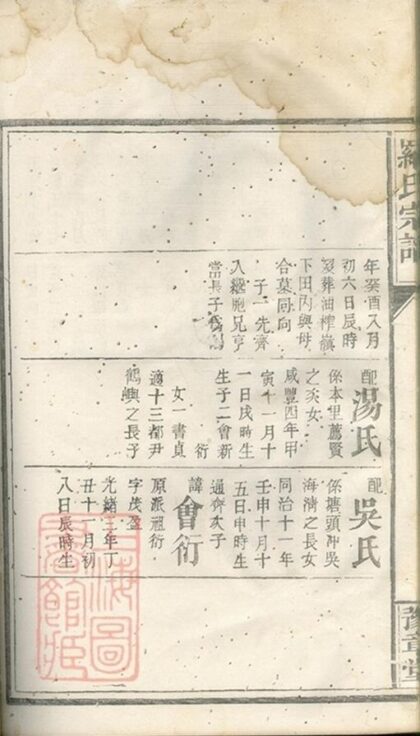 羅氏宗譜
豫章堂
年癸酉八月
初六日辰時
歿葬油榨嶺
下田丙與母
合墓同向
子一先齊
入繼胞兄亨
當長子
配湯氏
係本里薦賢
之次女
咸豐四年甲
寅十一月十
一日戌時生
生子二會新
衍
女一書貞
適十三都尹
鶴輿之長子
配吳氏
係塘頭沖吳
海清之長女
同治十一年
壬申十月十
五日申時生
通齊次子
諱會衍
原派祖衍
字茂盈
光緒三年丁
丑十一月初
八日辰時生
上海圖
書館藏